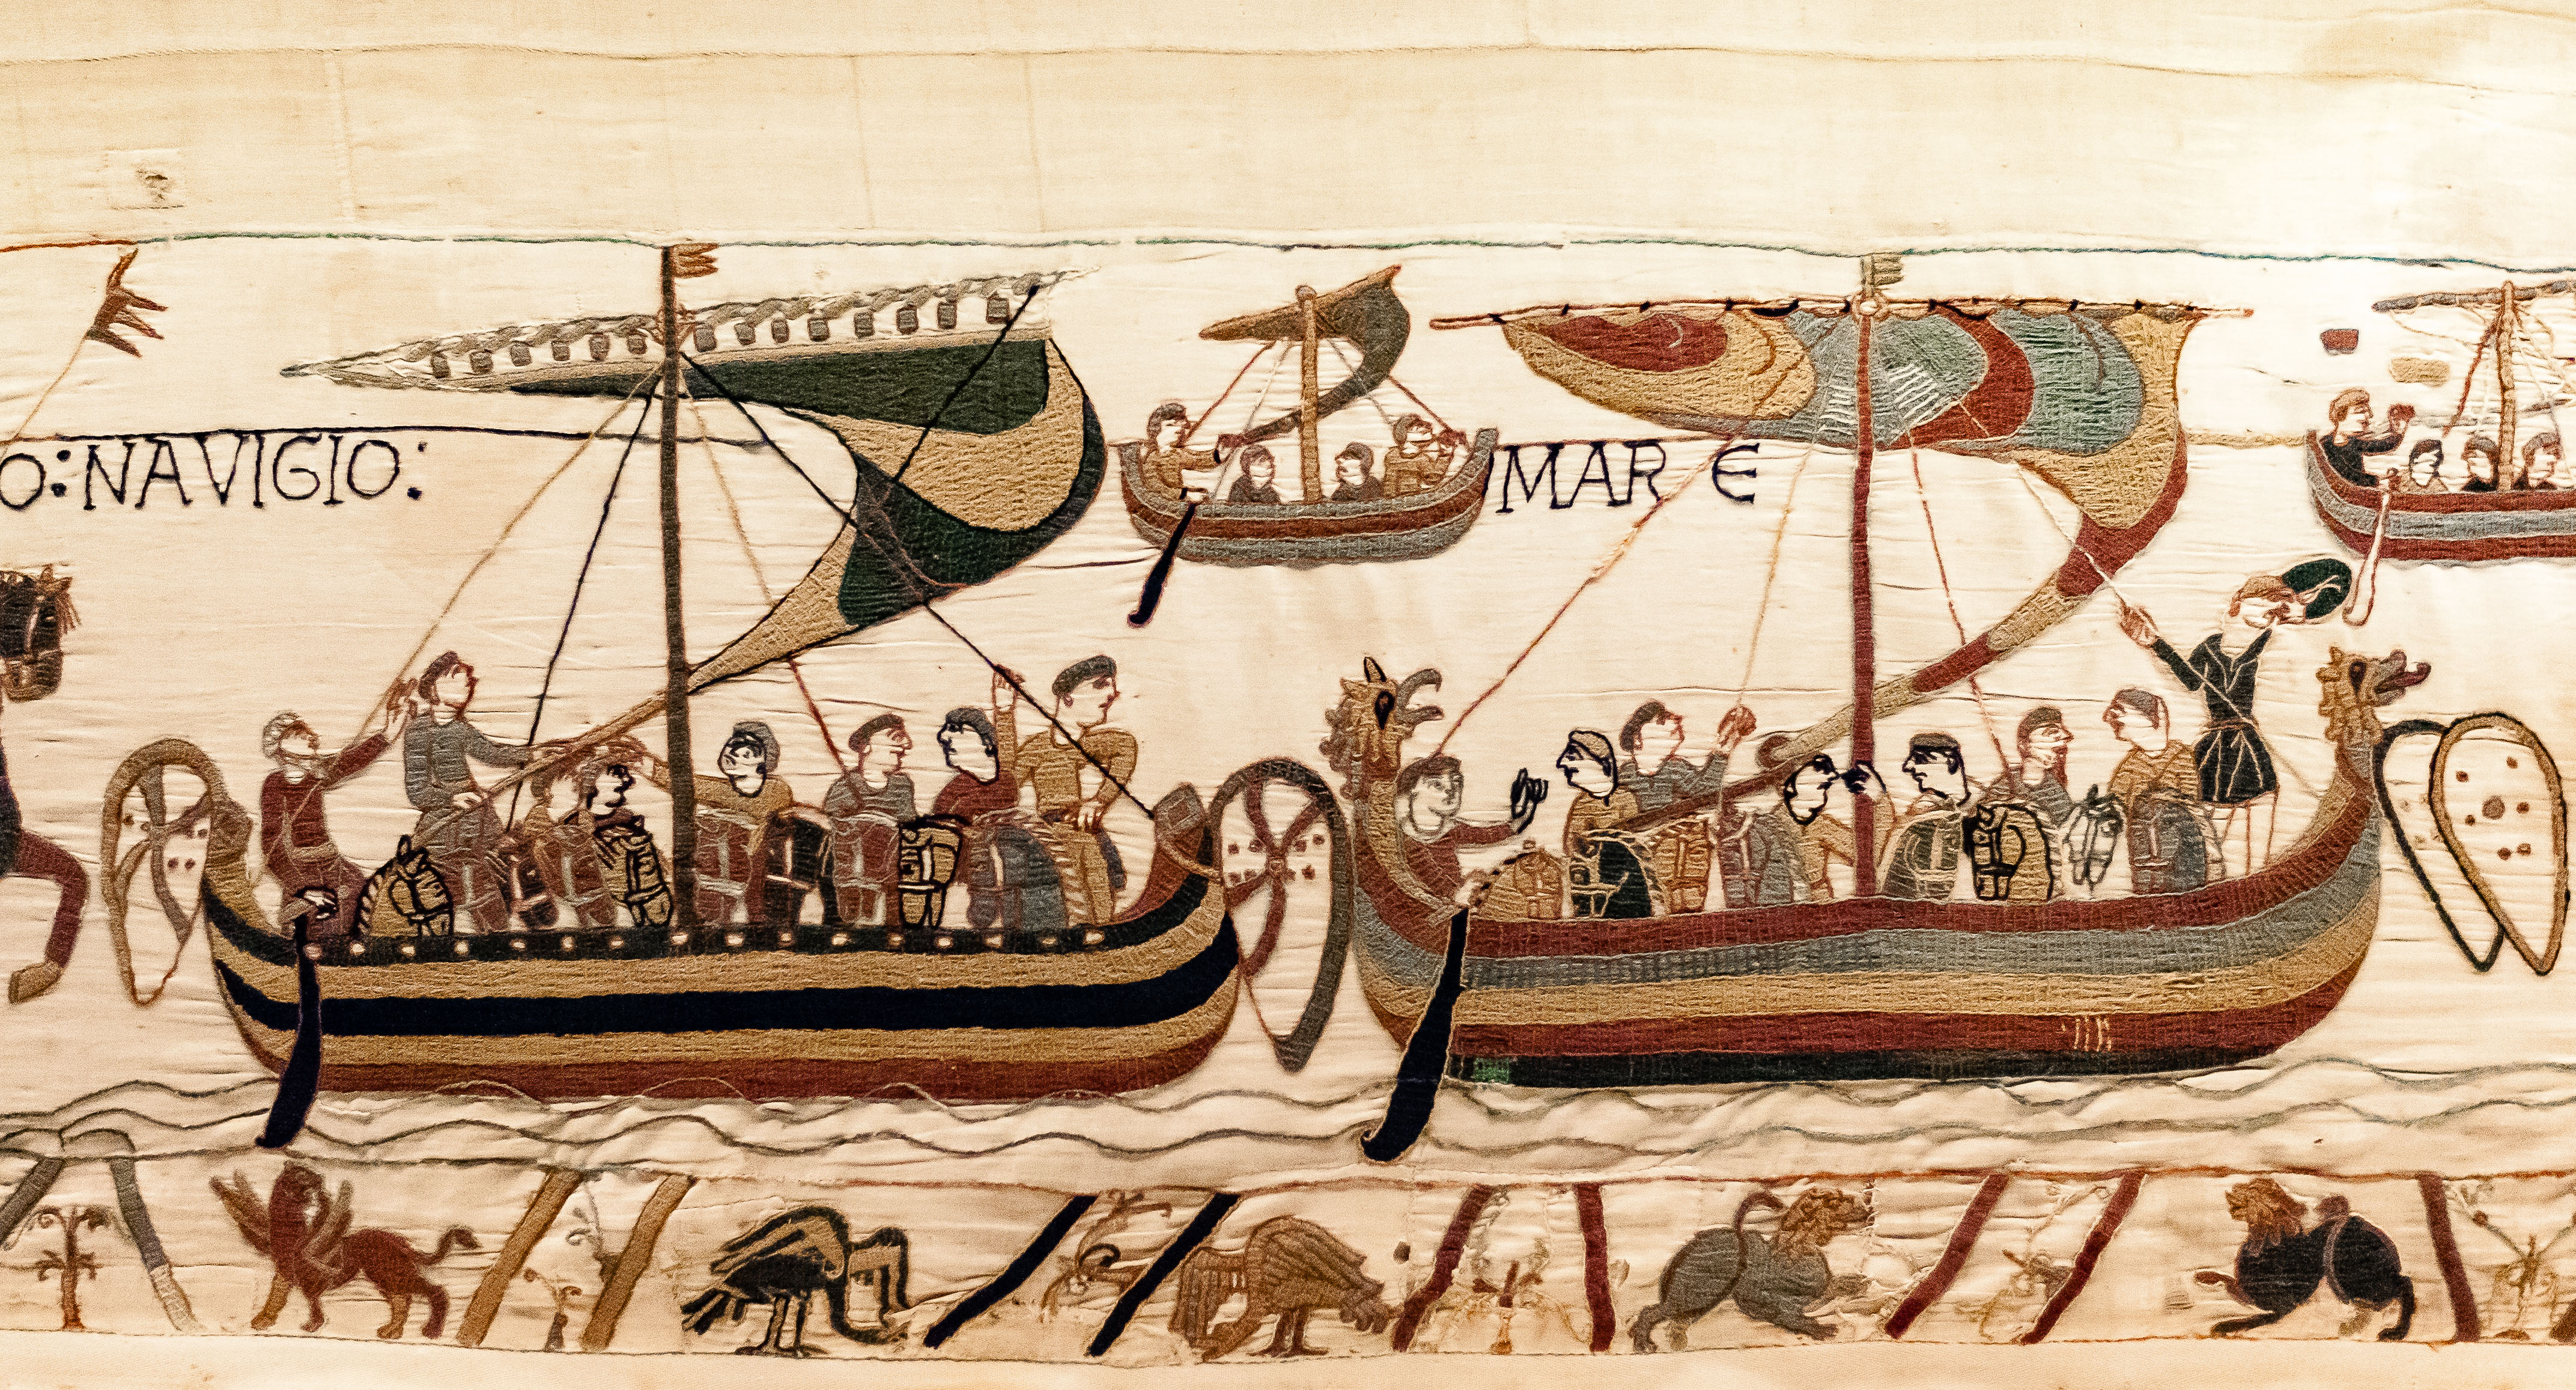 O:NAVIGIO: MARE